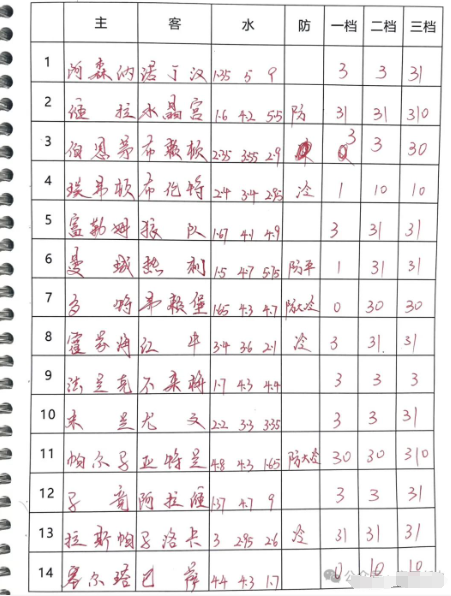 主 客 水 防 一档 二档 三档
1 阿森纳 诺丁汉 1.35 5 9 3 3 31
2 维拉 水晶宫 1.6 4.2 5.5 防 31 31 310
3 伯恩茅 布莱顿 2.35 3.55 2.9 3 3 30
4 埃弗顿 布伦特 2.4 3.4 2.95 冷 1 10 10
5 富勒姆 狼队 1.67 4.1 4.9 3 31 31
6 曼城 热刺 1.5 4.7 5.75 防平 1 31 31
7 多特 弗赖堡 1.65 4.3 4.7 防大冷 0 30 30
8 霍芬海 红牛 3.4 3.6 2.1 冷 3 31 31
9 法兰克 不来梅 1.7 4.3 4.4 3 3 3
10 米兰 尤文 2.2 3.3 3.35 3 3 31
11 帕尔马 亚特兰 4.8 4.3 1.65 防大冷 30 30 310
12 马竞 阿拉维 1.37 4.7 9 3 3 31
13 拉斯帕 马洛卡 3 2.95 2.6 冷 31 31 31
14 塞尔塔 巴萨 4.4 4.3 1.7 0 10 10
公众号